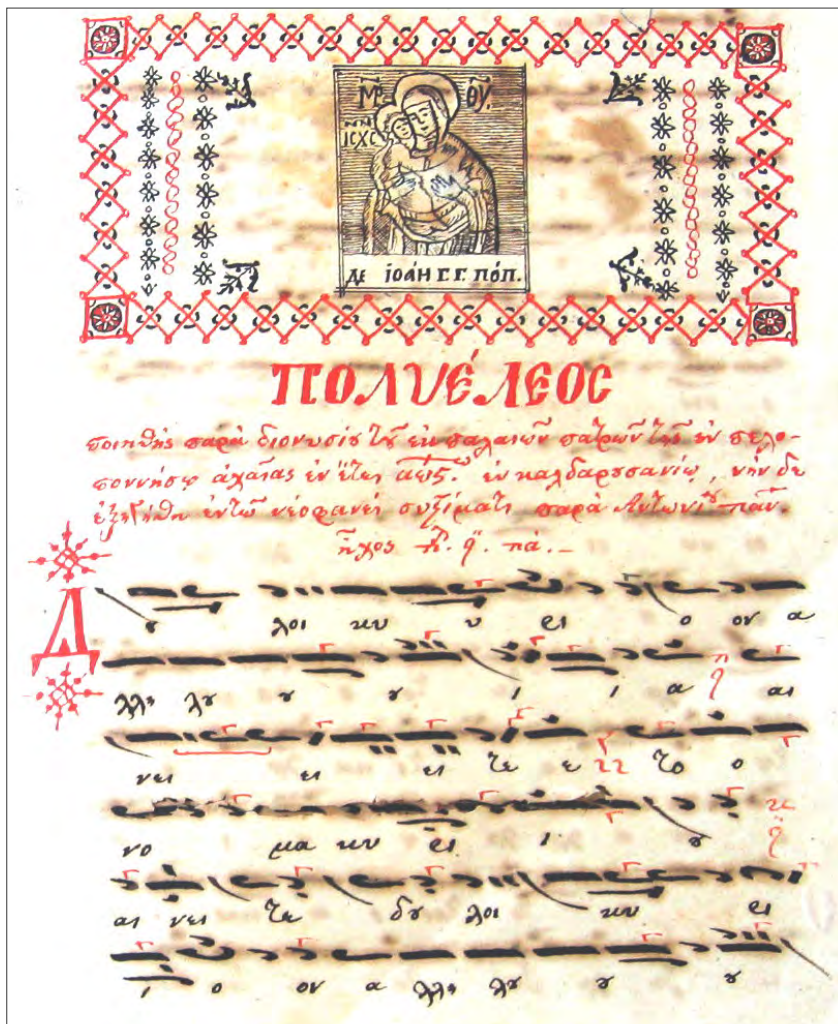 ΜΡ ΘΥ
ΙC ΧC
ΔΕ ΙΟΆΝ Γ. Γ. ΠΌΠ.
ΠΟΛΥΈΛΕΟC
ποιηθῆς παρὰ διονυσίου τοῦ ἐκ παλαιῶν πατρῶν τῆς ἐν πελο-
ποννήσῳ ἀχαΐας ἐν ἔτει αωϛ. ἐν καλδαρυσανίῳ, νῦν δὲ
ἐξηγήθη ἐν τῷ νεοφανεῖ συστίματι παρὰ Ἀντωνίου
ἦχος πα.
Δ ȣ λοι κυ υ ει ο ον α
λλη λȣ ȣ ȣ ι ι α αι
νει ει ει τε ε το ο
νο μα κυ ει ι ȣ
αι νει τε δȣ λοι κυ ει
ι ο ον α λλη λȣ ȣ ȣ